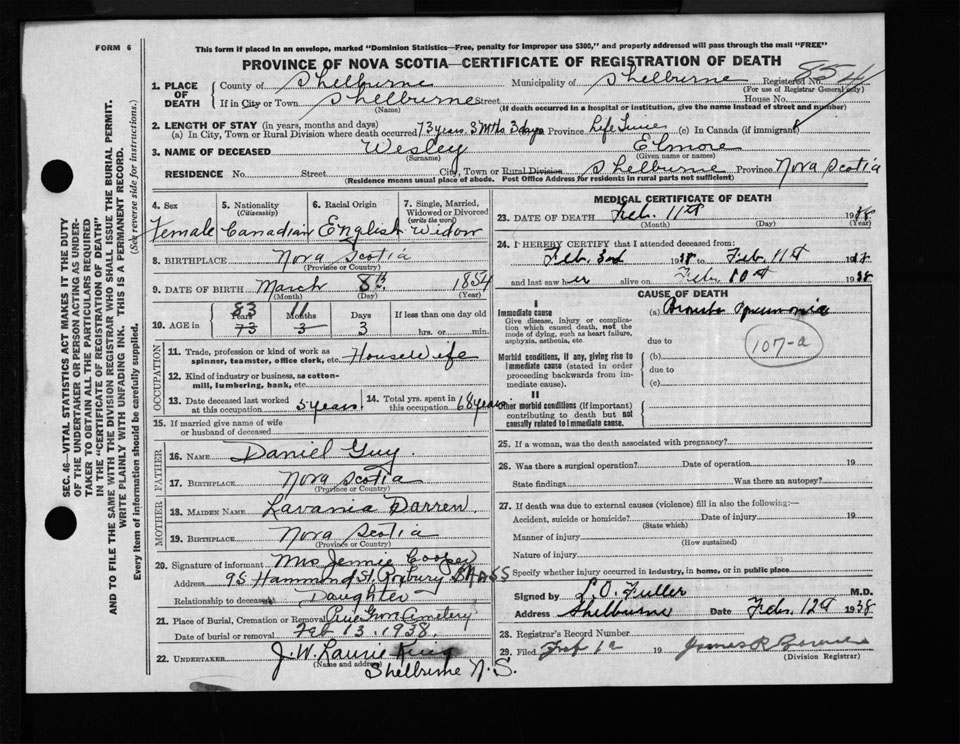 FORM 6
This form if placed in an envelope, marked "Dominion Statistics—Free, penalty for improper use $300," and properly addressed will pass through the mail "FREE"
PROVINCE OF NOVA SCOTIA—CERTIFICATE OF REGISTRATION OF DEATH
1. PLACE OF DEATH
County of Shelburne Municipality of Shelburne Registered No. 854
(For use of Registrar General only)
If in City or Town Shelburne Street House No.
(Name) (If death occurred in a hospital or institution, give the name instead of street and number)
2. LENGTH OF STAY (in years, months and days)
(a) In City, Town or Rural Division where death occurred 73 years 3 Mths 3 days Province Life Time (c) In Canada (if immigrant)
3. NAME OF DECEASED Wesley Elmore
(Surname) (Given name or names)
RESIDENCE No. Street City, Town or Rural Division Shelburne Province Nova Scotia
(Residence means usual place of abode. Post Office Address for residents in rural parts not sufficient)
4. Sex
5. Nationality
(Citizenship)
6. Racial Origin
7. Single, Married, Widowed or Divorced
(write the word)
Female Canadian English Widow
8. BIRTHPLACE Nova Scotia
(Province or Country)
9. DATE OF BIRTH March 8th 1854
(Month) (Day) (Year)
83 11
10. AGE in Years Months Days If less than one day old
73 3 3 hrs. or min.
OCCUPATION
11. Trade, profession or kind of work as spinner, teamster, office clerk, etc. HouseWife
12. Kind of industry or business, as cotton-mill, lumbering, bank, etc.
13. Date deceased last worked at this occupation 5 years.
14. Total yrs. spent in this occupation 68 years
15. If married give name of wife or husband of deceased
FATHER
16. NAME Daniel Guy.
17. BIRTHPLACE Nova Scotia
(Province or Country)
MOTHER
18. MAIDEN NAME Lavania Darren
19. BIRTHPLACE Nova Scotia
(Province or Country)
20. Signature of informant Mrs Jennie Cooper
Address 95 Hammond St, Roxbury MASS
Relationship to deceased Daughter
21. Place of Burial, Cremation or Removal Pine Grove Cemetery
Date of burial or removal Feb 13. 1938.
22. UNDERTAKER J. W. Laurie King
(Name and address)
Shelburne N.S.
MEDICAL CERTIFICATE OF DEATH
23. DATE OF DEATH Feb. 11th 1938
(Month) (Day) (Year)
24. I HEREBY CERTIFY that I attended deceased from:
Feb. 3rd 1938 to Feb. 11th 1938
and last saw er alive on Feb. 10th 1938
CAUSE OF DEATH
I
Immediate cause
Give disease, injury or complication which caused death, not the mode of dying, such as heart failure, asphyxia, asthenia, etc.
(a) Broncho pneumonia
due to
107-a
Morbid conditions, if any, giving rise to immediate cause (stated in order proceeding backwards from immediate cause).
(b)
due to
(c)
II
Other morbid conditions (if important) contributing to death but not causally related to immediate cause.
25. If a woman, was the death associated with pregnancy?
26. Was there a surgical operation? Date of operation 19
State findings Was there an autopsy?
27. If death was due to external causes (violence) fill in also the following:—
Accident, suicide or homicide? Date of injury 19
(State which)
Manner of injury
(How sustained)
Nature of injury
Specify whether injury occurred in industry, in home, or in public place
Signed by L.O. Fuller M.D.
Address Shelburne Date Feb. 12th 1938
28. Registrar's Record Number
29. Filed Feb 12 19 James R
(Division Registrar)
SEC. 46—VITAL STATISTICS ACT MAKES IT THE DUTY
OF THE UNDERTAKER OR PERSON ACTING AS UNDERTAKER TO OBTAIN ALL THE PARTICULARS REQUIRED
IN THE "CERTIFICATE OF REGISTRATION OF DEATH"
AND TO FILE THE SAME WITH THE DIVISION REGISTRAR WHO SHALL ISSUE THE BURIAL PERMIT.
WRITE PLAINLY WITH UNFADING INK. THIS IS A PERMANENT RECORD.
Every item of information should be carefully supplied. (See reverse side for instructions.)